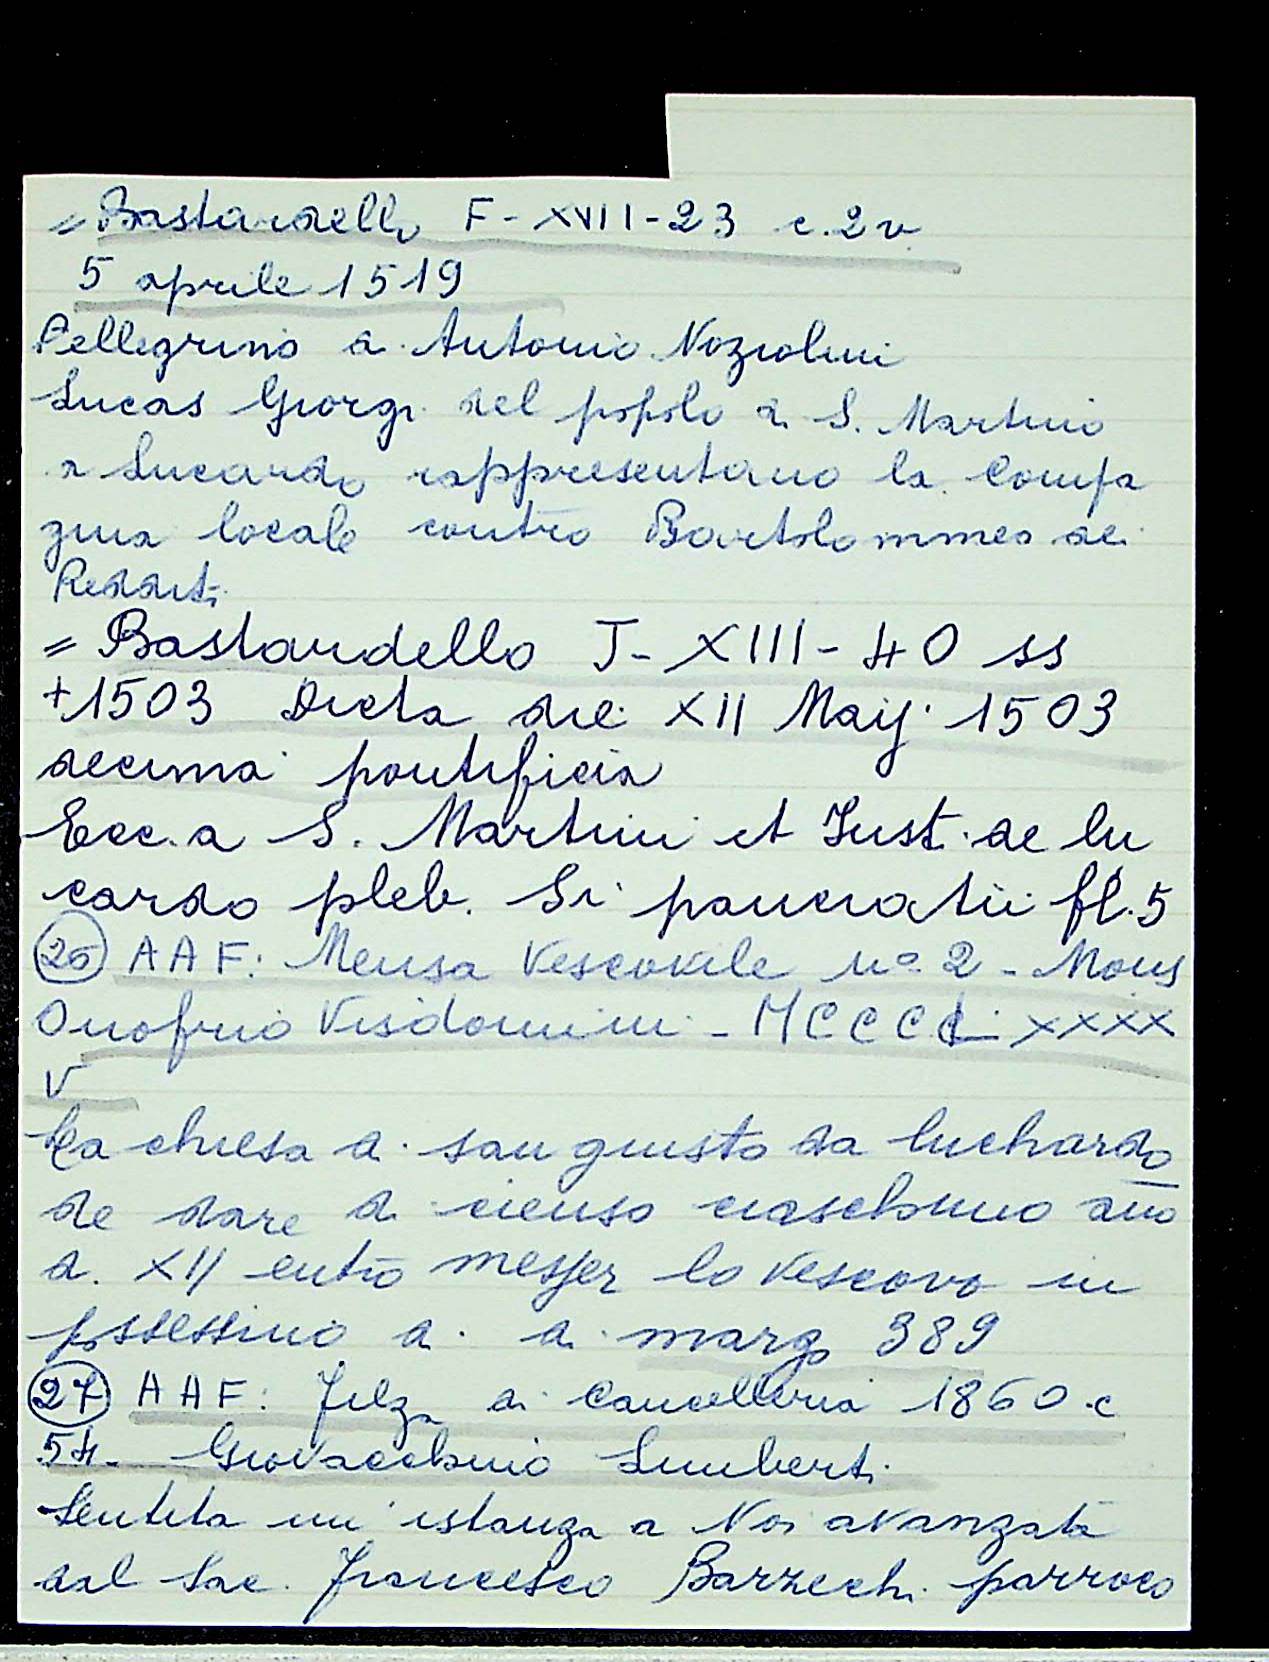 = Bastardello F - XVII - 23 c. 2v
5 aprile 1519
Pellegrino di Antonio Noziolini
Lucas Giorgi del popolo di S. Martino
a Lucardo rappresentano la Compa
gnia locale contro Bartolommeo dei
Redditi
= Bastardello J - XIII - 40 ss
+ 1503 Dicta die XII Maij 1503
decima pontificia
Ecc.a S. Martini et Just. de lu
cardo pleb. Si pancratii fl. 5
26 AAF: Mensa Vescovile n° 2 - Mons
Onofrio Visdomini - MCCCLXXXX
V
La chiesa di san giusto da luchardo
de dare di cienso ciaschuno ano
d. XII entro messer lo vescovo in
possessino a. d. marzo 389
27 AAF: Filza di Cancelleria 1860 c
54 - Giovacchino Limberti
Sentita un' istanza a Noi avanzata
dal Sac. Francesco Barzechi parroco